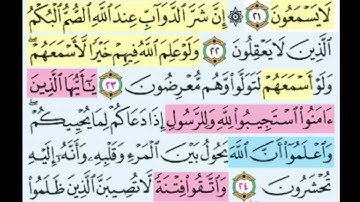 لَا يَسْمَعُونَ ٢١ ۞ إِنَّ شَرَّ ٱلدَّوَآبِّ عِندَ ٱللَّهِ ٱلصُّمُّ ٱلْبُكْمُ
ٱلَّذِينَ لَا يَعْقِلُونَ ٢٢ وَلَوْ عَلِمَ ٱللَّهُ فِيهِمْ خَيْرًا لَّأَسْمَعَهُمْ ۖ
وَلَوْ أَسْمَعَهُمْ لَتَوَلَّوا۟ وَّهُم مُّعْرِضُونَ ٢٣ يَـٰٓأَيُّهَا ٱلَّذِينَ
ءَامَنُوا۟ ٱسْتَجِيبُوا۟ لِلَّهِ وَلِلرَّسُولِ إِذَا دَعَاكُمْ لِمَا يُحْيِيكُمْ ۖ
وَٱعْلَمُوٓا۟ أَنَّ ٱللَّهَ يَحُولُ بَيْنَ ٱلْمَرْءِ وَقَلْبِهِۦ وَأَنَّهُۥٓ إِلَيْهِ
تُحْشَرُونَ ٢٤ وَٱتَّقُوا۟ فِتْنَةً لَّا تُصِيبَنَّ ٱلَّذِينَ ظَلَمُوا۟